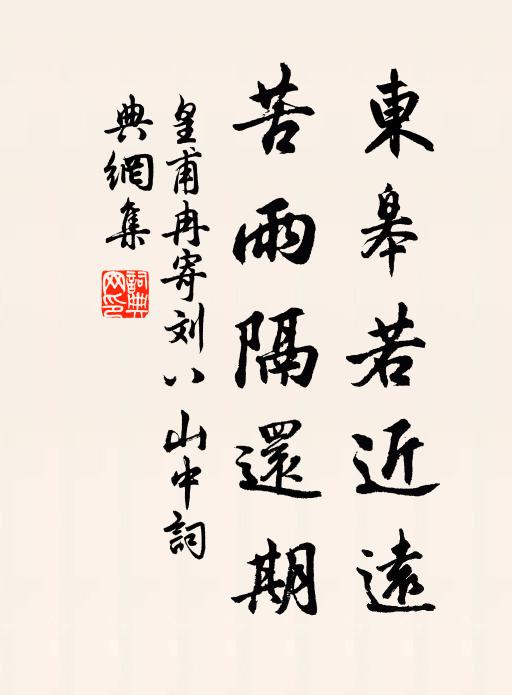 東皋若近遠
苦雨隔還期
皇甫冉寄刘八山中詞
典網集
詞典网印